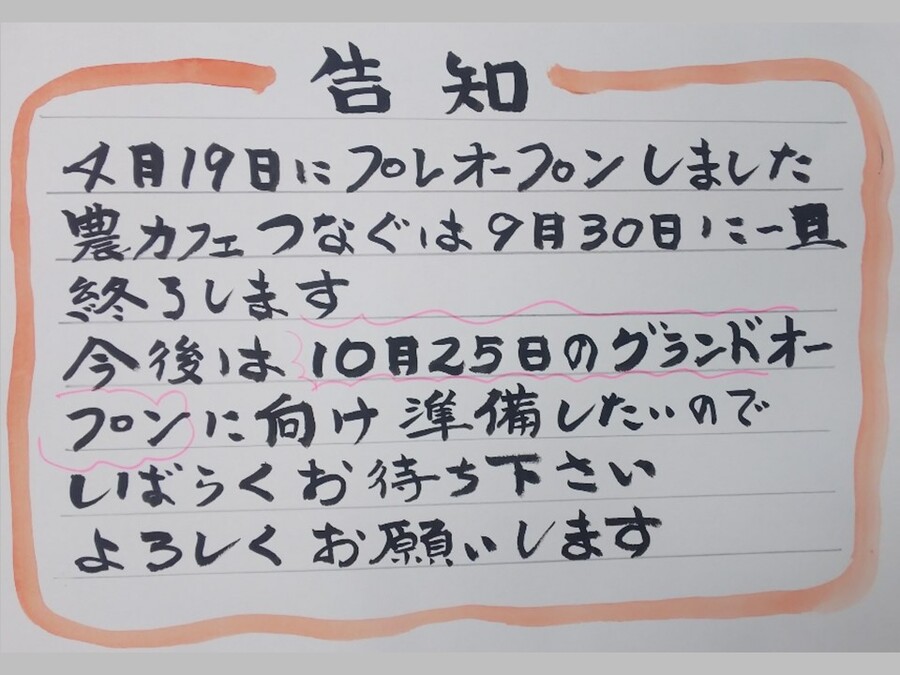 告知
4月19日にプレオープンしました
農カフェつなぐは9月30日に一旦
終了します
今後は10月25日のグランドオー
プンに向け準備したいので
しばらくお待ち下さい
よろしくお願いします